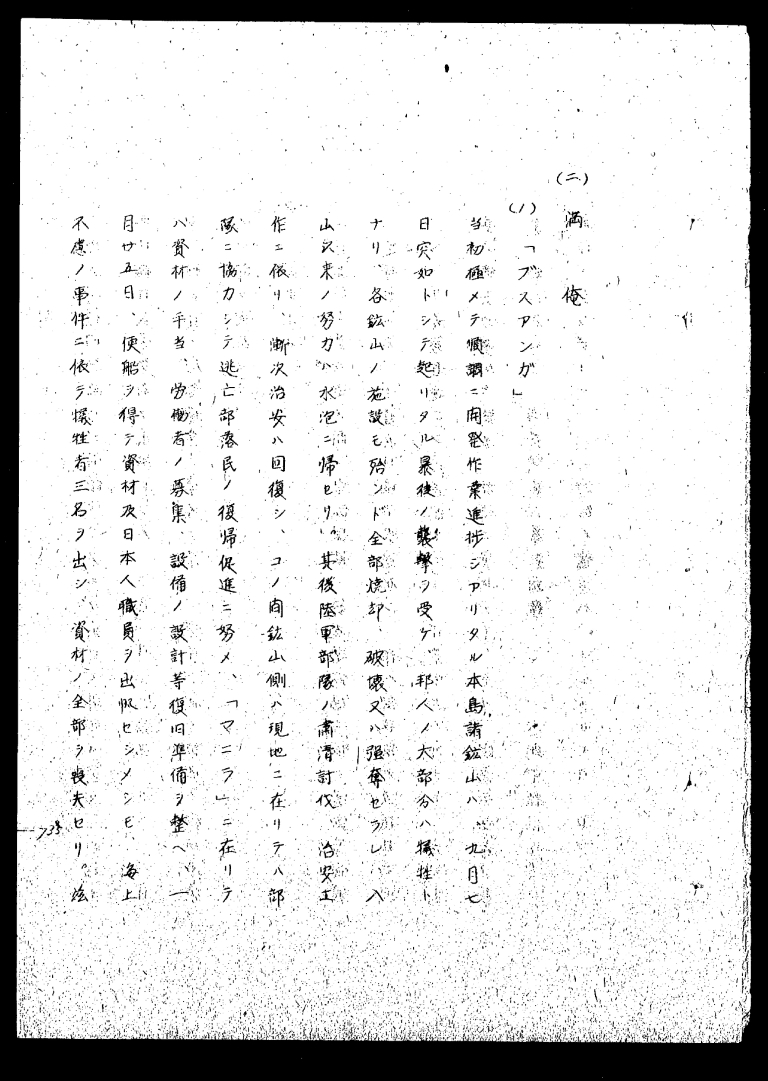 (二) 満俺
(1) 「ブスアンガ」
当初極メテ順調ニ開発作業進捗シアリタル本島諸鉱山ハ、九月七
日突如トシテ起リタル暴徒ノ襲撃ヲ受ケ、邦人ノ大部分ハ犠牲ト
ナリ、各鉱山ノ施設モ殆ンド全部焼却、破壊又ハ強奪セラレ、入
山以来ノ努力ハ水泡ニ帰セリ、其後陸軍部隊ノ粛清討伐、治安工
作ニ依リ、漸次治安ハ回復シ、コノ間鉱山側ハ現地ニ在リテハ部
隊ニ協力シテ逃亡部落民ノ復帰促進ニ努メ、「マニラ」ニ在リテ
ハ資材ノ手当、労働者ノ募集、設備ノ設計等復旧準備ヲ整ヘ、一
月廿五日、便船ヲ得テ資材及日本人職員ヲ出帆セシメシモ、海上
不慮ノ事件ニ依テ犠牲者三名ヲ出シ、資材ノ全部ヲ喪失セリ。茲
738